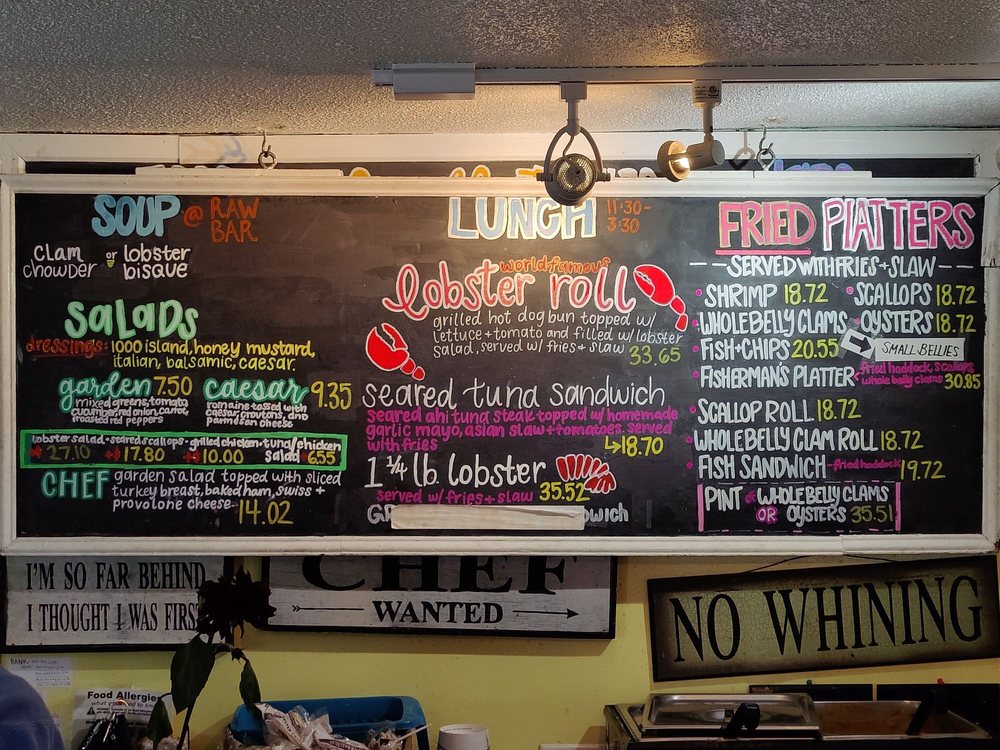 SOUP @ RAW
BAR
clam or lobster
chowder bisque
salads
dressings: 1000 island, honey mustard,
italian, balsamic, caesar.
garden 7.50
mixed greens, tomato
cucumber, red onion, carrot,
roasted red peppers
caesar 9.35
romaine tossed with
caesar, croutons, and
parmesan cheese
lobster salad • seared scallops • grilled chicken • tuna/chicken
27.10 17.80 10.00 salad 6.55
CHEF garden salad topped with sliced
turkey breast, baked ham, swiss +
provolone cheese. 14.02
LUNCH 11:30-
3:30
world famous
lobster roll
grilled hot dog bun topped w/
lettuce + tomato and filled w/ lobster
salad, served w/ fries + slaw 33.65
seared tuna sandwich
seared ahi tuna steak topped w/ homemade
garlic mayo, asian slaw + tomatoes. served
with fries 18.70
1 1/4 lb. lobster
served w/ fries + slaw 35.52
FRIED PLATTERS
SERVED WITH FRIES + SLAW
• SHRIMP 18.72 • SCALLOPS 18.72
• WHOLE BELLY CLAMS • OYSTERS 18.72
• FISH + CHIPS 20.55 SMALL BELLIES
• FISHERMAN'S PLATTER • fried haddock, scallops,
whole belly clams 30.85
• SCALLOP ROLL 18.72
• WHOLE BELLY CLAM ROLL 18.72
• FISH SANDWICH - fried haddock 19.72
PINT OF WHOLE BELLY CLAMS
OR OYSTERS 35.51
I'M SO FAR BEHIND
I THOUGHT I WAS FIRST
CHEF
WANTED
NO WHINING
BANK
Food Allergies